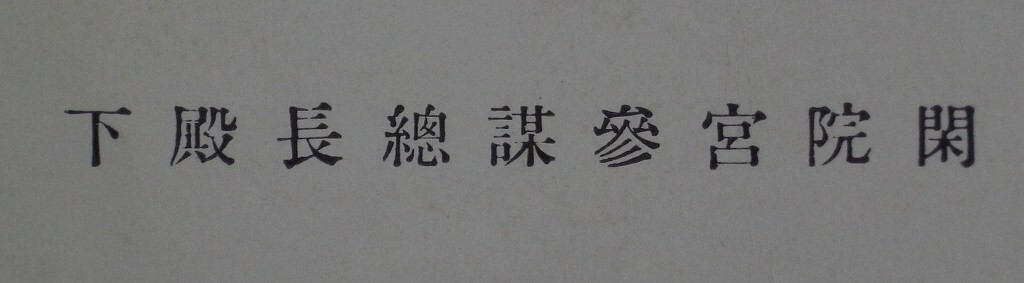 閑院宮參謀總長殿下